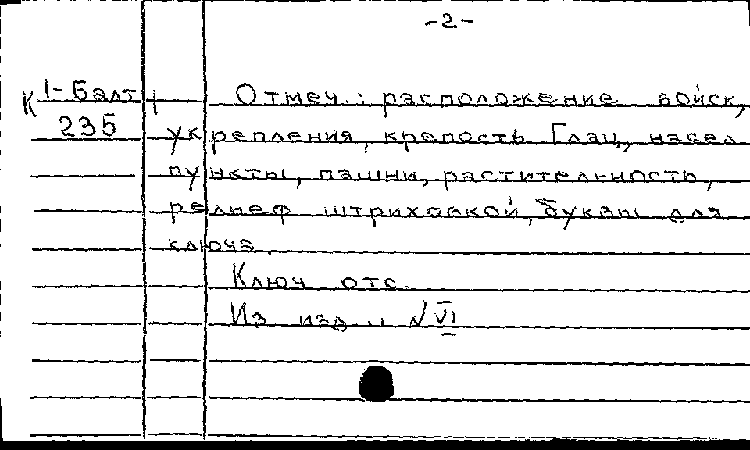 -2-
К 1-Балт
235
Отмеч.: расположение войск,
укрепления, крепость Глац, насел.
пункты, пашни, растительность,
рельеф штриховкой, буквы для
ключа.
Ключ отс.
Из изд.: № VI